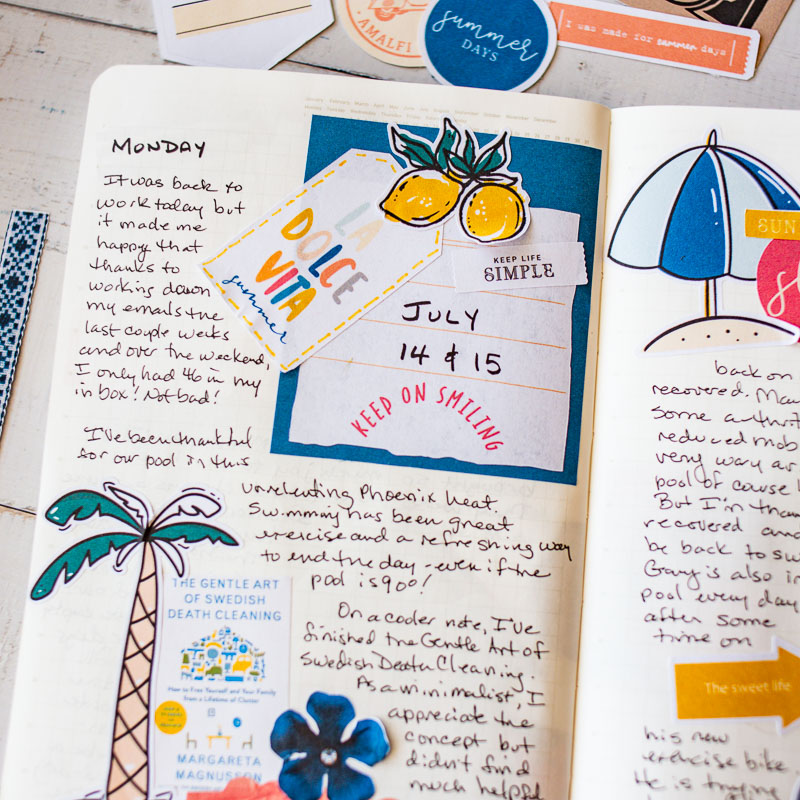 AMALFI
summer
DAYS
I was made for summer days
MONDAY
It was back to
work today but
it made me
happy that
thanks to
working down
my emails the
last couple weeks
and over the weekend,
I only had 46 in my
inbox! Not bad!
I've been thankful
for our pool in this
unrelenting Phoenix heat.
Swimming has been great
exercise and a refreshing way
to end the day - even if the
pool is 90°!
On a cooler note, I've
finished the Gentle Art of
Swedish Death Cleaning.
As a minimalist, I
appreciate the
concept but
didn't find
much helpful
LA
DOLCE
VITA
summer
KEEP LIFE
SIMPLE
JULY
14 & 15
KEEP ON SMILING
THE GENTLE ART
OF SWEDISH
DEATH CLEANING
How to Free Yourself and Your Family
from a Lifetime of Clutter
MARGARETA
MAGNUSSON
SUN
back on
recovered. Ma
some arthrit
reduced mob
very way ar
pool of course
But I'm than
recovered and
be back to sw
Gary is also in
pool every day
after some
time on
The sweet life
his new
exercise bike
He is trying